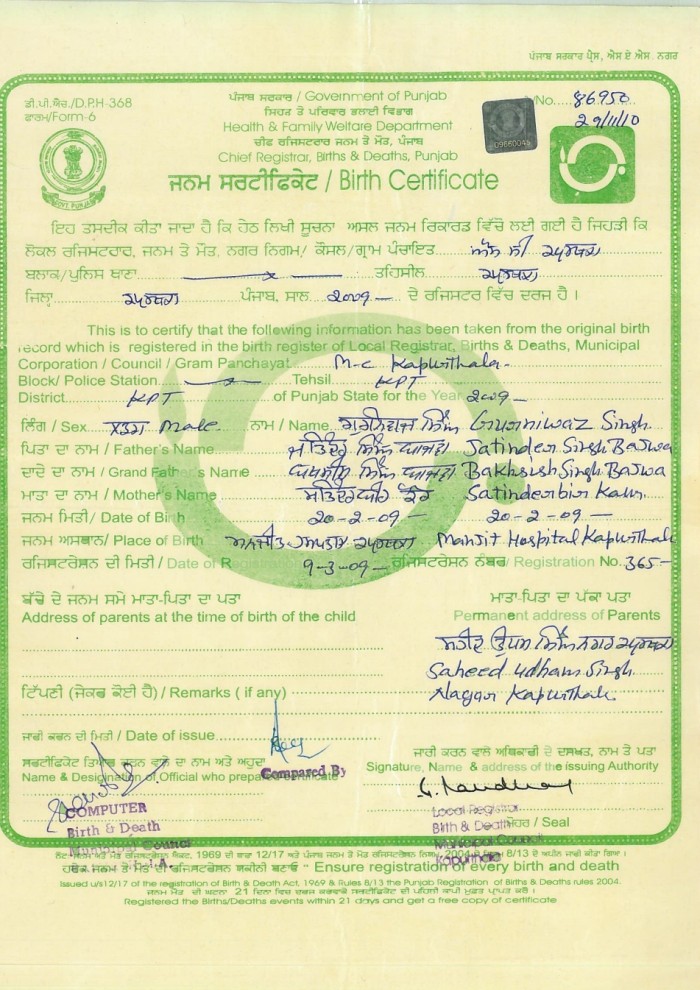 ਪੰਜਾਬ ਸਰਕਾਰ ਪ੍ਰੈਸ, ਐਸ ਏ ਐਸ ਨਗਰ
ਡੀ.ਪੀ.ਐਚ./D.P.H-368
ਫਾਰਮ/Form-6
ਪੰਜਾਬ ਸਰਕਾਰ / Government of Punjab
ਸਿਹਤ ਤੇ ਪਰਿਵਾਰ ਭਲਾਈ ਵਿਭਾਗ
Health & Family Welfare Department
ਚੀਫ ਰਜਿਸਟਰਾਰ ਜਨਮ ਤੇ ਮੌਤ, ਪੰਜਾਬ
Chief Registrar, Births & Deaths, Punjab
No. 86950
29/11/10
GOVT. PUNJAB
ਜਨਮ ਸਰਟੀਫਿਕੇਟ / Birth Certificate
ਇਹ ਤਸਦੀਕ ਕੀਤਾ ਜਾਦਾ ਹੈ ਕਿ ਹੇਠ ਲਿਖੀ ਸੂਚਨਾ ਅਸਲ ਜਨਮ ਰਿਕਾਰਡ ਵਿੱਚੋਂ ਲਈ ਗਈ ਹੈ ਜਿਹੜੀ ਕਿ
ਲੋਕਲ ਰਜਿਸਟਰਾਰ, ਜਨਮ ਤੇ ਮੌਤ, ਨਗਰ ਨਿਗਮ/ ਕੌਂਸਲ/ਗ੍ਰਾਮ ਪੰਚਾਇਤ
ਬਲਾਕ/ਪੁਲਿਸ ਥਾਣਾ �ਤਹਿਸੀਲ
ਜਿਲ੍ਹਾ ਪੰਜਾਬ, ਸਾਲ 2009 ਦੇ ਰਜਿਸਟਰ ਵਿੱਚ ਦਰਜ ਹੈ ।
This is to certify that the following information has been taken from the original birth
record which is registered in the birth register of Local Registrar, Births & Deaths, Municipal
Corporation / Council / Gram Panchayat M-C Kapurthala
Block/ Police Station Tehsil KPT
District KPT of Punjab State for the Year 2009
ਲਿੰਗ / Sex Male ਨਾਮ / Name Gurniwaz Singh
ਪਿਤਾ ਦਾ ਨਾਮ / Father's Name Jatinder Singh Bajwa
ਦਾਦੇ ਦਾ ਨਾਮ / Grand Father's Name Bakhsish Singh Bajwa
ਮਾਤਾ ਦਾ ਨਾਮ / Mother's Name Satinderbir Kaur
ਜਨਮ ਮਿਤੀ/ Date of Birth 20-2-09 20-2-09
ਜਨਮ ਅਸਥਾਨ/ Place of Birth Manjit Hospital Kapurthala
ਰਜਿਸਟਰੇਸ਼ਨ ਦੀ ਮਿਤੀ / Date of R 9-3-09 ਰਜਿਸਟਰੇਸ਼ਨ ਨੰਬਰ/ Registration No. 365
ਬੱਚੇ ਦੇ ਜਨਮ ਸਮੇ ਮਾਤਾ-ਪਿਤਾ ਦਾ ਪਤਾ
Address of parents at the time of birth of the child
ਮਾਤਾ-ਪਿਤਾ ਦਾ ਪੱਕਾ ਪਤਾ
Permanent address of Parents
Saheed Udham Singh
Nagar Kapurthala
ਟਿੱਪਣੀ (ਜੇਕਰ ਕੋਈ ਹੈ) / Remarks ( if any)
ਜਾਰੀ ਕਰਨ ਦੀ ਮਿਤੀ / Date of issue
ਸਰਟੀਫਿਕੇਟ ਤਿਆਰ ਕਰਨ ਵਾਲੇ ਦਾ ਨਾਮ ਅਤੇ ਅਹੁਦਾ
Name & Designation of Official who prepared certificate
Compared By
ਜਾਰੀ ਕਰਨ ਵਾਲੇ ਅਧਿਕਾਰੀ ਦੇ ਦਸਖਤ, ਨਾਮ ਤੇ ਪਤਾ
Signature, Name & address of the issuing Authority
COMPUTER
Birth & Death
Municipal Council
Local Registrar
Birth & Death
Municipal Council
Kapurthala
ਮੋਹਰ / Seal
ਹਰੇਕ ਜਨਮ ਤੇ ਮੌਤ ਦੀ ਰਜਿਸਟਰੇਸ਼ਨ ਯਕੀਨੀ ਬਣਾਓ " Ensure registration of every birth and death
Issued u/s12/17 of the registration of Birth & Death Act, 1969 & Rules 8/13 the Punjab Registration of Births & Deaths rules 2004.
ਜਨਮ ਮੌਤ ਦੀ ਘਟਨਾ 21 ਦਿਨਾ ਵਿਚ ਦਰਜ ਕਰਵਾਕੇ ਸਰਟੀਫਿਕੇਟ ਦੀ ਪਹਿਲੀ ਕਾਪੀ ਮੁਫਤ ਪ੍ਰਾਪਤ ਕਰੋ ।
Registered the Births/Deaths events within 21 days and get a free copy of certificate